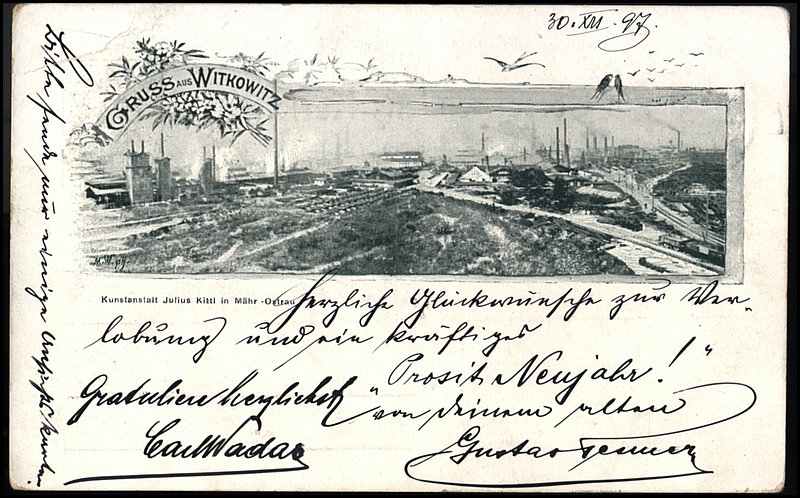 30. XII. 97.
GRUSS AUS WITKOWITZ
Kunstanstalt Julius Kittl in Mähr.-Ostrau
Herzliche Glückwünsche zur Ver-
lobung und ein kräftiges
„Prosit Neujahr!"
von deinem alten
Gustav
Gratuliere herzlichst
Carl Wadas
Bitte sende mir einige Ansichtskarten